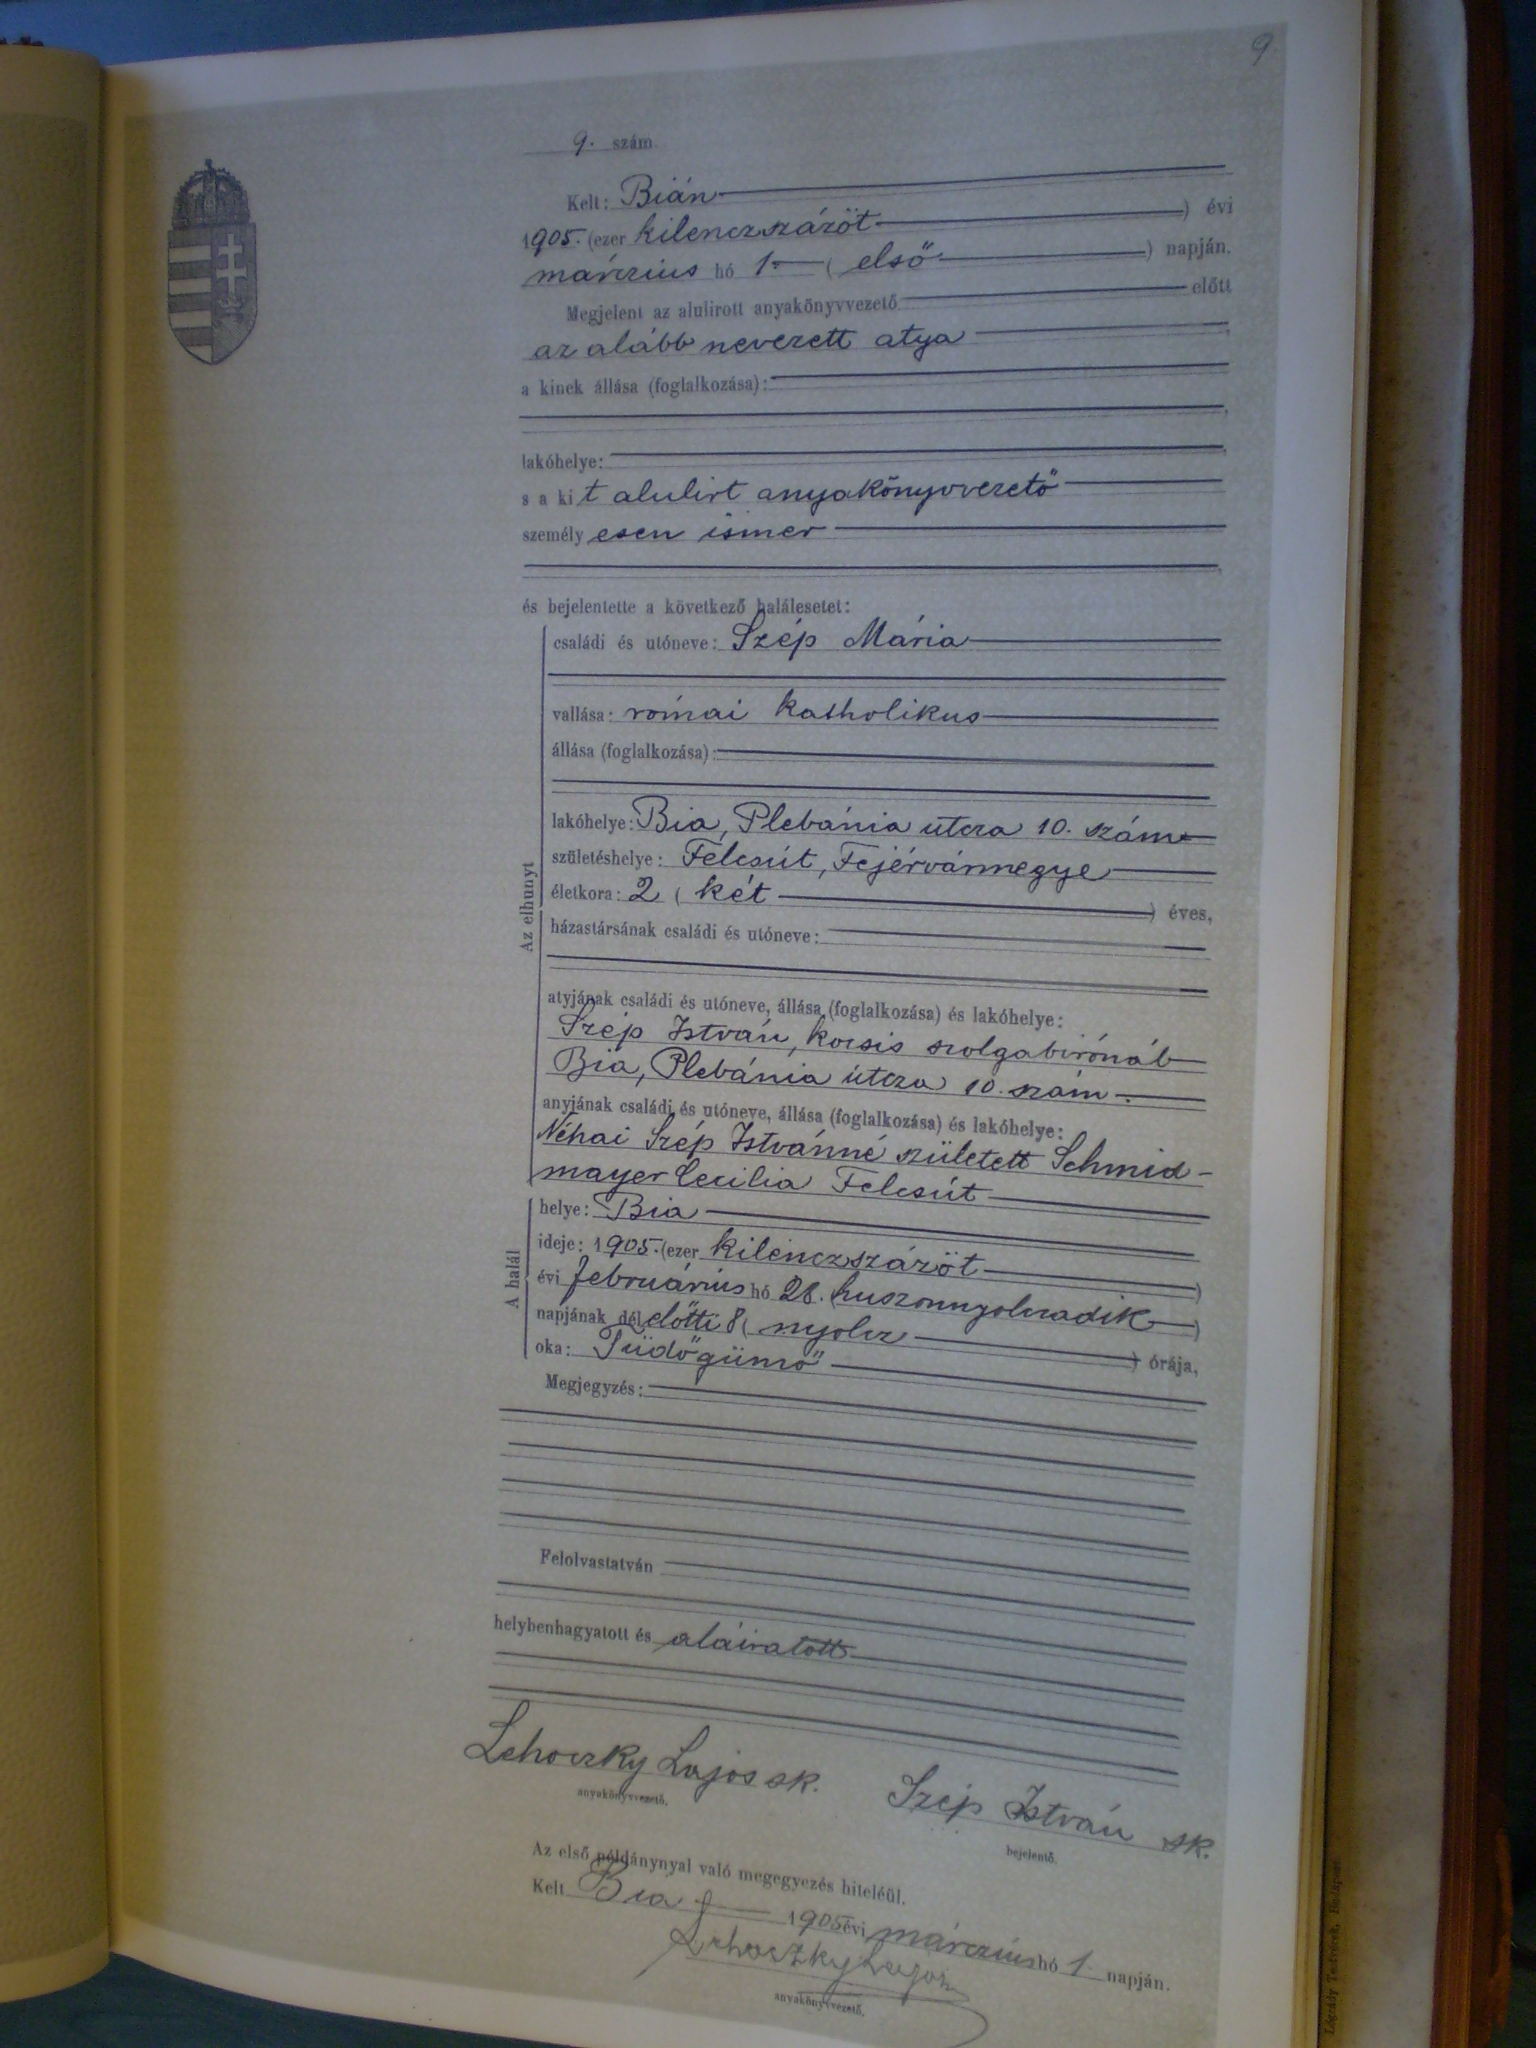 9.
9. szám.
Kelt: Bián
1905. (ezer kilenczszázöt ) évi
márczius hó 1. ( első ) napján.
Megjelent az alulirott anyakönyvvezető előtt
az alább nevezett atya ,
a kinek állása (foglalkozása):
lakóhelye:
s a kit alulirt anyakönyvvezető
személyesen ismer
és bejelentette a következő halálesetet:
Az elhunyt
családi és utóneve: Szép Mária
vallása: római katholikus
állása (foglalkozása):
lakóhelye: Bia, Plebánia utcza 10. szám
születéshelye: Felcsút, Fejérvármegye
életkora: 2 ( két ) éves,
házastársának családi és utóneve:
atyjának családi és utóneve, állása (foglalkozása) és lakóhelye:
Szép István, kocsis szolgabirónál
Bia, Plebánia útcza 10. szám.
anyjának családi és utóneve, állása (foglalkozása) és lakóhelye:
Néhai Szép Istvánné született Schmid-
mayer Cecilia Felcsút
A halál
helye: Bia
ideje: 1905. (ezer kilenczszázöt )
évi februárius hó 28. (huszonnyolczadik )
napjának délelőtti 8 ( nyolcz ) órája,
oka: Tüdőgümő
Megjegyzés:
Felolvastatván
helybenhagyatott és aláiratott
Lehoczky Lajos sk.
anyakönyvvezető.
Szép István sk.
bejelentő.
Az első példánynyal való megegyezés hiteléül.
Kelt Bia 1905 évi márczius hó 1 napján.
Lehoczky Lajos
anyakönyvvezető.
Légrády Testvérek, Budapest